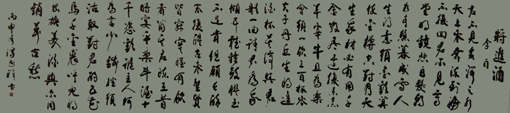 將進酒
李白
君不見黃河之水
天上来奔流到海
不復回君不見高
堂明鏡悲白髮朝
如青絲暮成雪人
生得意須盡歡莫
使金樽空對月天
生我材必有用千
金散盡還復来烹
羊宰牛且為樂
會須一飲三百杯岑
夫子丹丘生
君
歌一曲請君為我
傾耳聽鐘鼓饌玉
不足貴但願長醉
不復醒古来聖賢
皆寂寞惟有飲
者留其名陳王昔
時宴平樂斗酒十
千恣歡謔主人何
為言少錢徑須
沽取對君酌五花
馬千金裘呼兒將
出換美酒與爾同
銷萬古愁